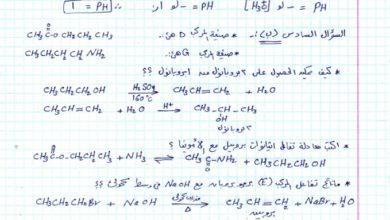 PH = - لو [H₃O⁺] PH = - لو ١٠ ∴ PH = 1
السؤال السادس (ب):- * صيغة المركب D هي: CH₃C(=O)-O CH₂CH₂CH₃
* صيغة المركب G هي: CH₃CH₂CH₂NH₂
* كيف يمكن الحصول على ٢-بروبانول من ١-بروبانول ؟؟
CH₃CH₂CH₂OH —(H₂SO₄ / 160°C)→ CH₃CH=CH₂ + H₂O
CH₃CH=CH₂ + H₂O —(H⁺)→ CH₃-CH(OH)-CH₃
٢-بروبانول
* اكتب معادلة تفاعل إيثانوات بروبيل مع الأمونيا ؟
CH₃C(=O)-O-CH₂CH₂CH₃ + NH₃ ⇌ CH₃C(=O)-NH₂ + CH₃CH₂CH₂OH
* ما ناتج تفاعل المركب (E) بروموبروبان مع NaOH في وسط كحولي ؟؟
CH₃CH₂CH₂Br + NaOH —(كحولي / Δ)→ CH₃CH=CH₂ + NaBr + H₂O
بروبين